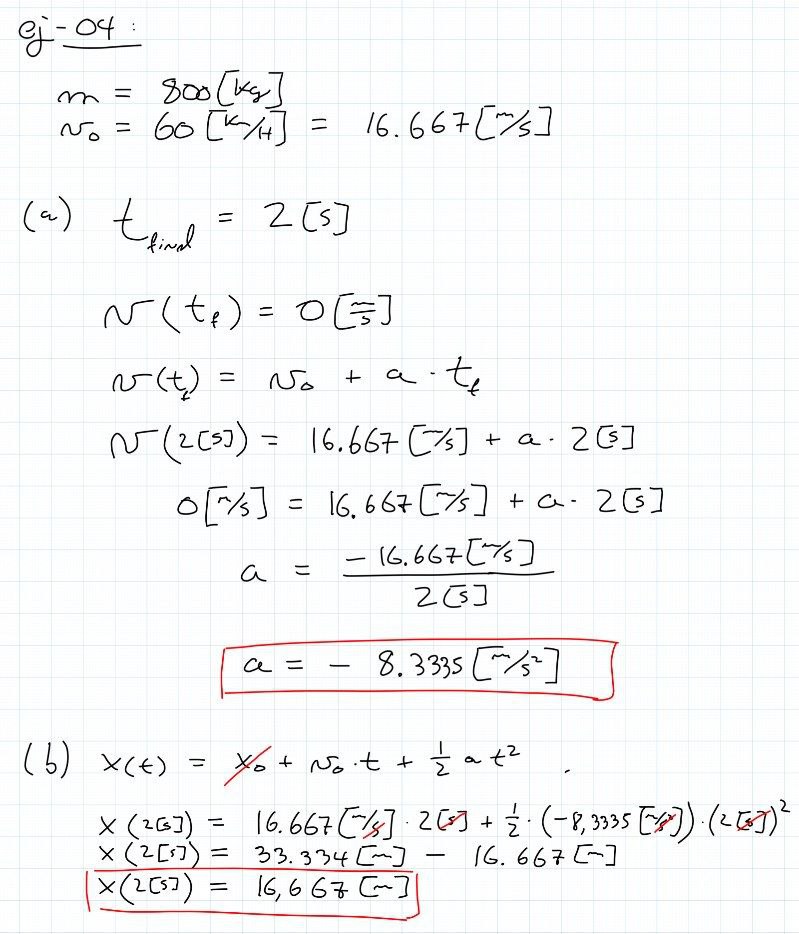 ej-04:
m = 800 [kg]
v₀ = 60 [km/H] = 16.667 [m/s]
(a) t_final = 2 [s]
v(t_f) = 0 [m/s]
v(t_f) = v₀ + a · t_f
v(2[s]) = 16.667 [m/s] + a · 2 [s]
0 [m/s] = 16.667 [m/s] + a · 2 [s]
a = -16.667 [m/s] / 2 [s]
a = - 8.3335 [m/s²]
(b) x(t) = x₀ + v₀ · t + 1/2 a t² .
x(2[s]) = 16.667 [m/s] · 2[s] + 1/2 · (-8,3335 [m/s²]) · (2[s])²
x(2[s]) = 33.334 [m] - 16.667 [m]
x(2[s]) = 16,667 [m]